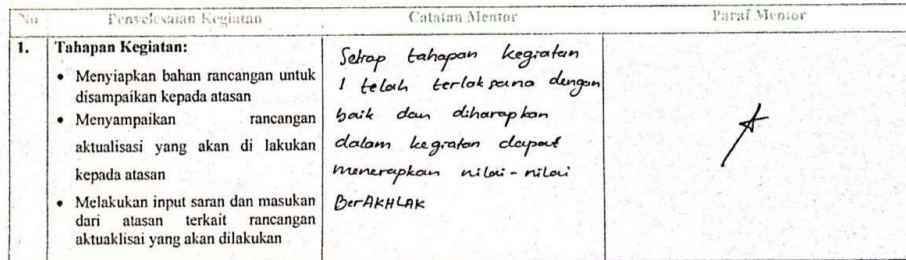 No
Penyelesaian Kegiatan
Catatan Mentor
Paraf Mentor
1.
Tahapan Kegiatan:
• Menyiapkan bahan rancangan untuk
disampaikan kepada atasan
• Menyampaikan rancangan
aktualisasi yang akan di lakukan
kepada atasan
• Melakukan input saran dan masukan
dari atasan terkait rancangan
aktuaklisai yang akan dilakukan
Setiap tahapan kegiatan
1 telah terlaksana dengan
baik dan diharapkan
dalam kegiatan dapat
menerapkan nilai-nilai
BerAKHLAK